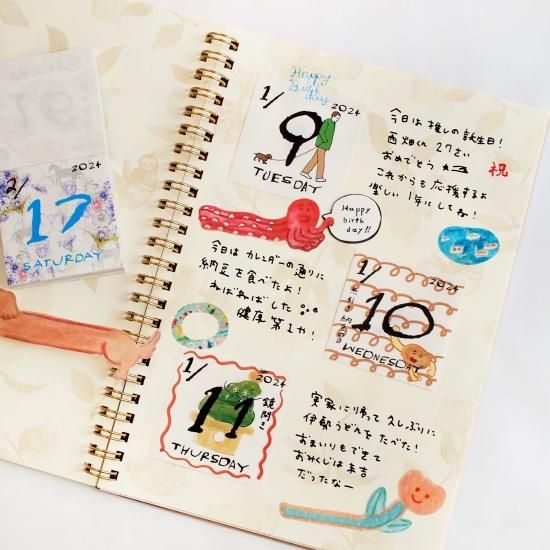 2/
2024
17
SATURDAY
Happy
Birth
day
1/
2024
9
TUESDAY
今日は推しの誕生日!
西畑くん 27さい
おめでとう
祝
これからも応援するよ
楽しい1年にしてね!
Happy
birth
day!!
今日はカレンダーの通りに
納豆を食べたよ!
ねばねばした
健康第1か!
1/
2024
10
WEDNESDAY
1/
2024
11
鏡開き
THURSDAY
実家に帰って久しぶりに
伊勢うどんをたべた!
おまいりもできて
おみくじは末吉
だったなー